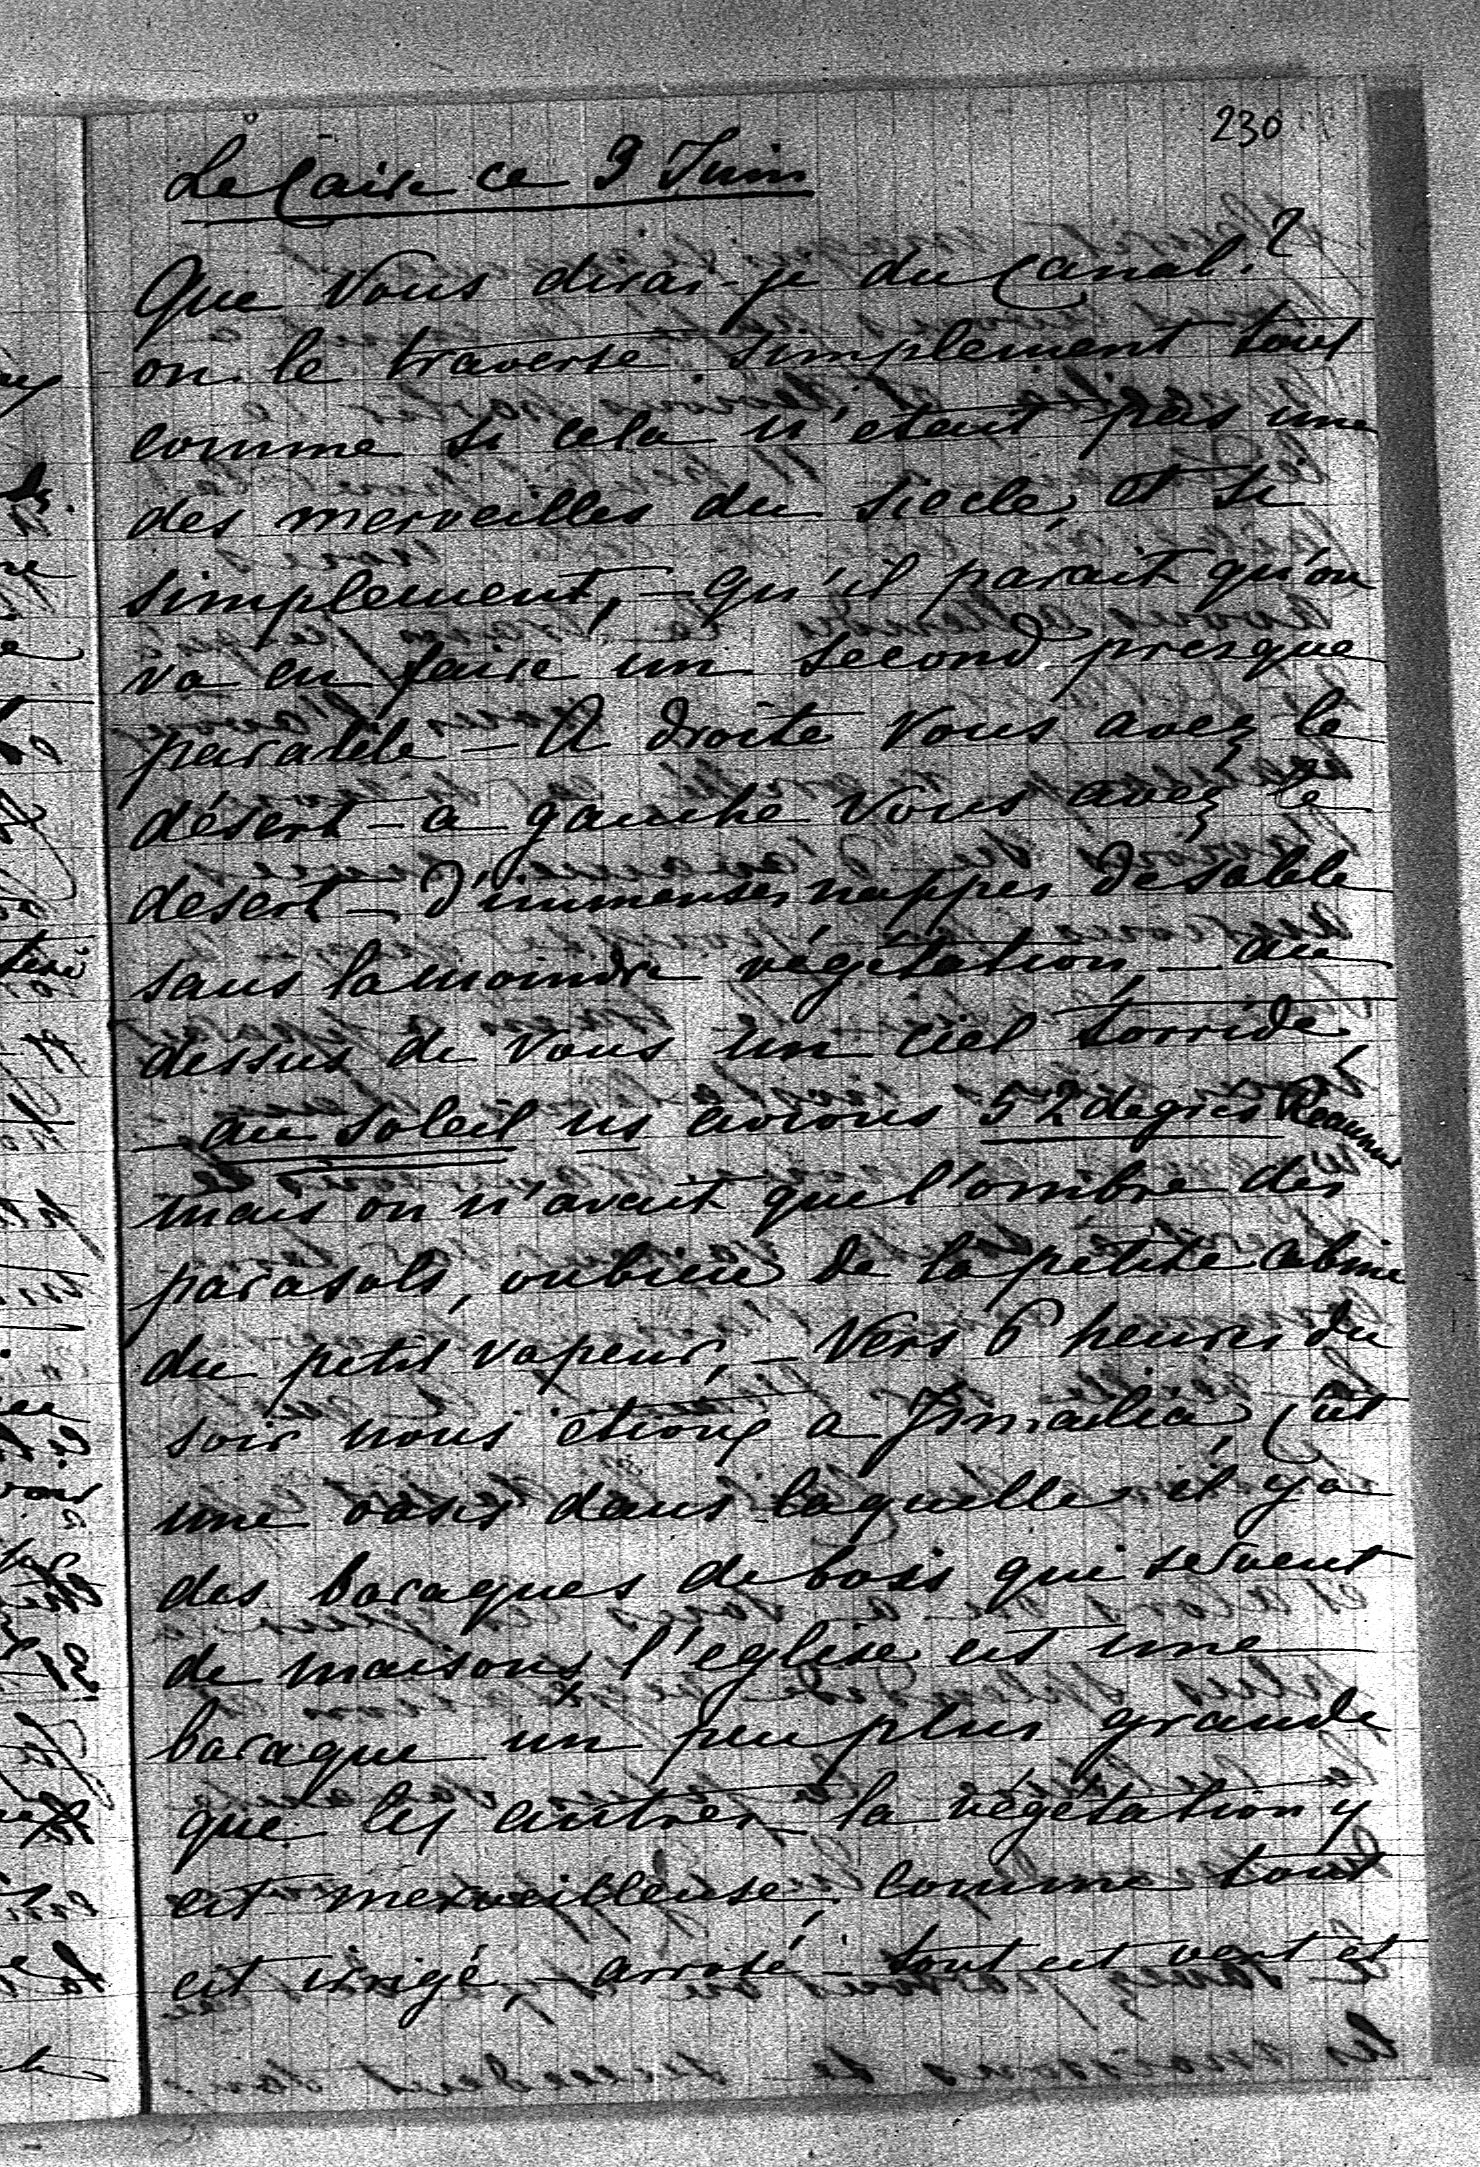 230
Le Caire ce 9 Juin
Que Vous dirai-je du Canal?
on le traverse simplement tout
comme si cela n'etait pas une
des merveilles du siecle, et si
simplement, - qu'il parait qu'on
va en faire un second presque
paralele - A droite Vous avez le
désert - a gauche Vous avez le
desert - d'immenses nappes de sable
sans la moindre végétation, - au
dessus de Vous un ciel torride
- au soleil ns avions 52 degrés Reaumur
mais on n'avait que l'ombre des
parasols, oubien de la petite cabine
du petit vapeur, - Vers 6 heures du
soir nous etions a Ismailia, C'est
une oasis dans laquelle il y a
des baraques de bois qui servent
de maisons, l'eglise est une
baraque un peu plus grande
que les autres - la végétation y
est merveilleuse, comme tout
est irrigé, - arrosé - tout est vert et